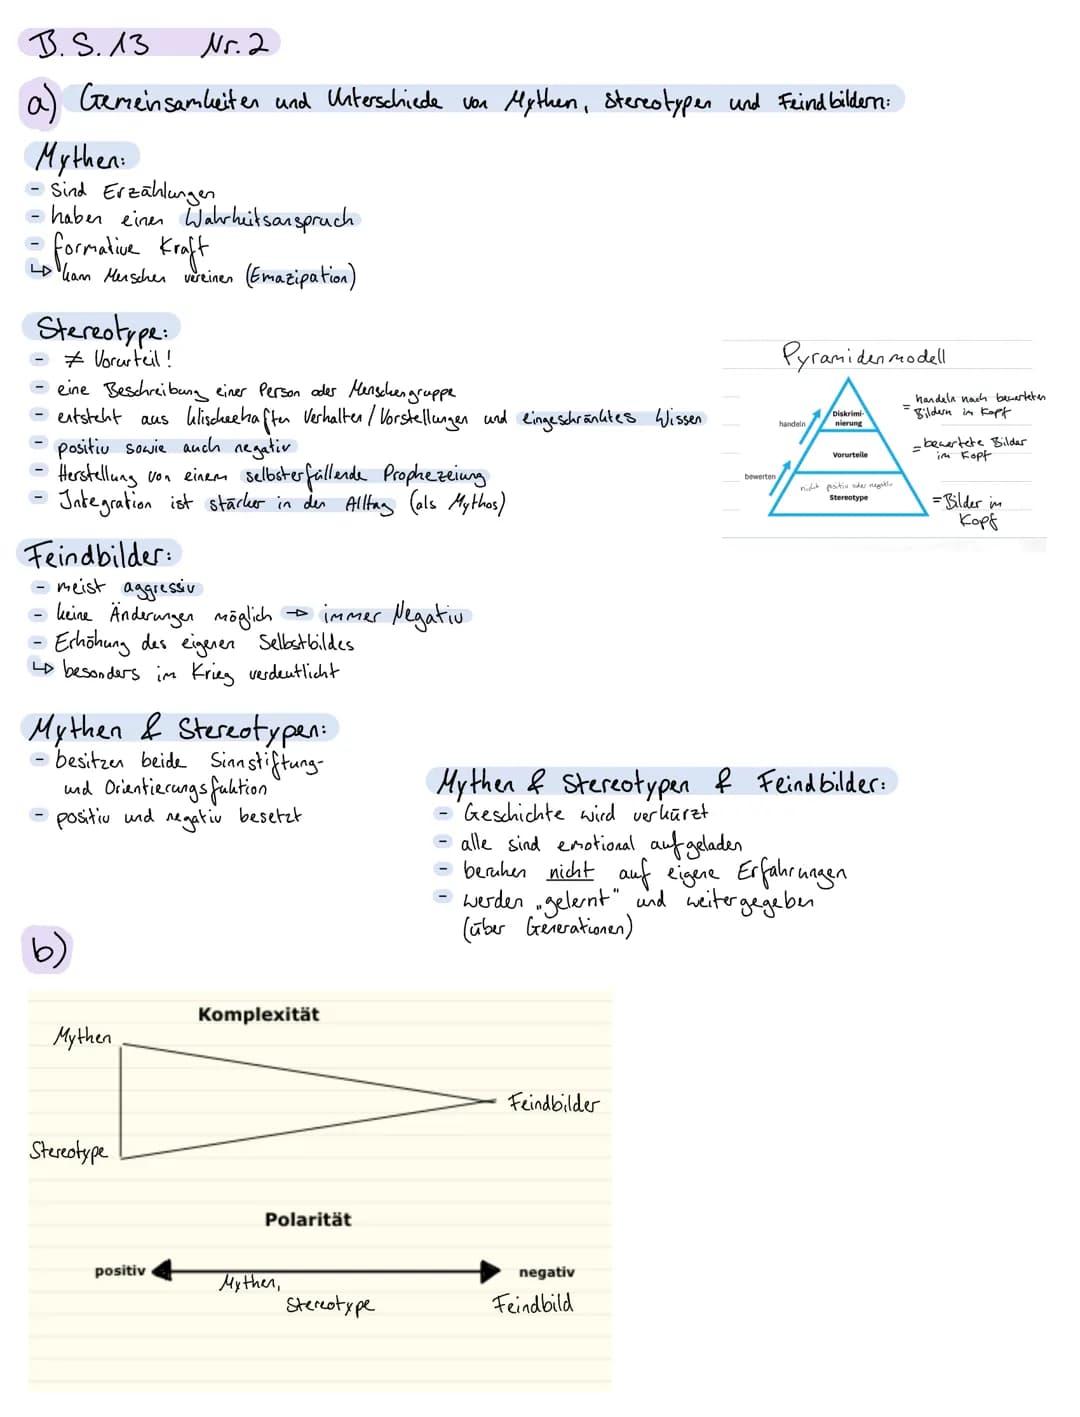 B. S. 13 Nr. 2
a) Gemeinsamkeiten und Unterschiede von Mythen, Stereotypen und Feindbildern:
Mythen:
- sind Erzählungen
- haben einen Wahrheitsanspruch
- formative Kraft
↳ kann Menschen vereinen (Emazipation)
Stereotype:
- ≠ Vorurteil!
- eine Beschreibung einer Person oder Menschengruppe
- entsteht aus klischeehaften Verhalten / Vorstellungen und eingeschränktes Wissen
- positiv sowie auch negativ
- Herstellung von einem selbsterfüllende Prophezeiung
- Integration ist stärker in den Alltag (als Mythos)
Pyramidenmodell
handeln
Diskrimi-
nierung
= handeln nach bewerteten
Bildern im Kopf
bewerten
Vorurteile
= bewertete Bilder
im Kopf
nicht positiv oder negativ
Stereotype
= Bilder im
Kopf
Feindbilder:
- meist aggressiv
- keine Änderungen möglich → immer Negativ
- Erhöhung des eigenen Selbstbildes
↳ besonders im Krieg verdeutlicht
Mythen & Stereotypen:
- besitzen beide Sinnstiftung-
und Orientierungsfuktion
- positiv und negativ besetzt
Mythen & Stereotypen & Feindbilder:
- Geschichte wird verkürzt
- alle sind emotional aufgeladen
- beruhen nicht auf eigene Erfahrungen
- werden „gelernt" und weitergegeben
(über Generationen)
b)
Komplexität
Mythen
Feindbilder
Stereotype
Polarität
positiv
negativ
Mythen,
Stereotype
Feindbild